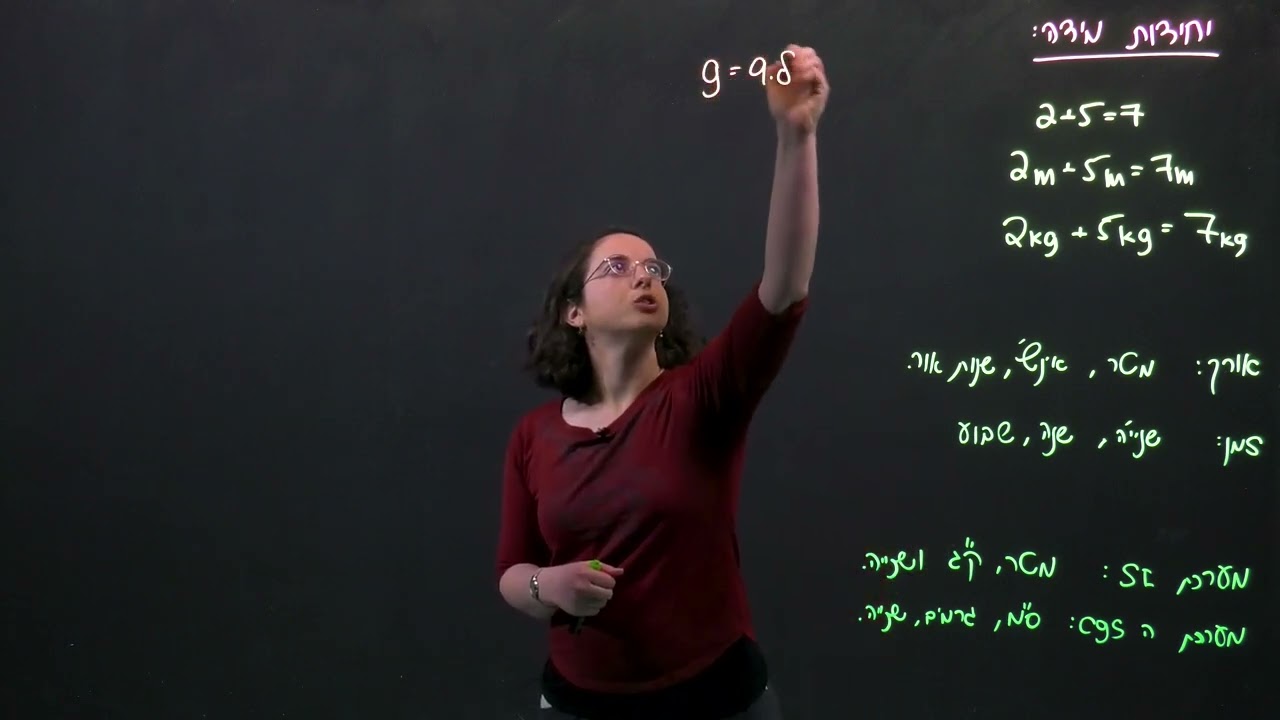 יחידות מידה:
2+5=7
2m+5m=7m
2kg+5kg=7kg
אורך: מטר, אינץ', שנות אור.
זמן: שנייה, שנה, שבוע
מערכת SI: מטר, ק"ג ושנייה.
מערכת ה cgs: ס"מ, גרמים, שנייה.
g=9.8